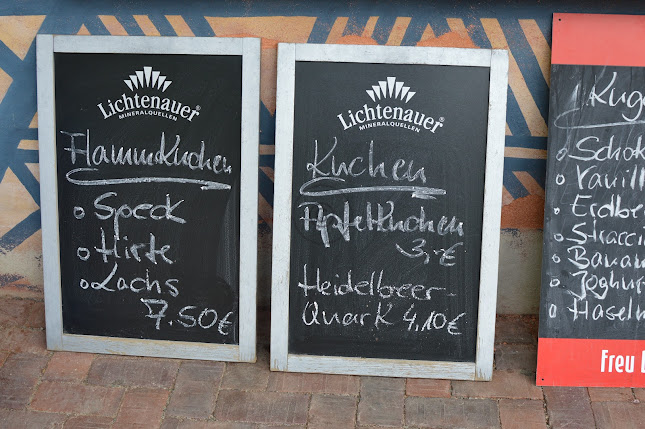 Lichtenauer®
MINERALQUELLEN
Flammkuchen
o Speck
o Hirte
o Lachs
7.50€
Lichtenauer®
MINERALQUELLEN
Kuchen
Apfelkuchen
3,-€
Heidelbeer-
Quark 4,10€
Kuge
o Schok
o Vanill
o Erdbee
o Straccia
o Banan
o Joghur
o Haseln
Freu